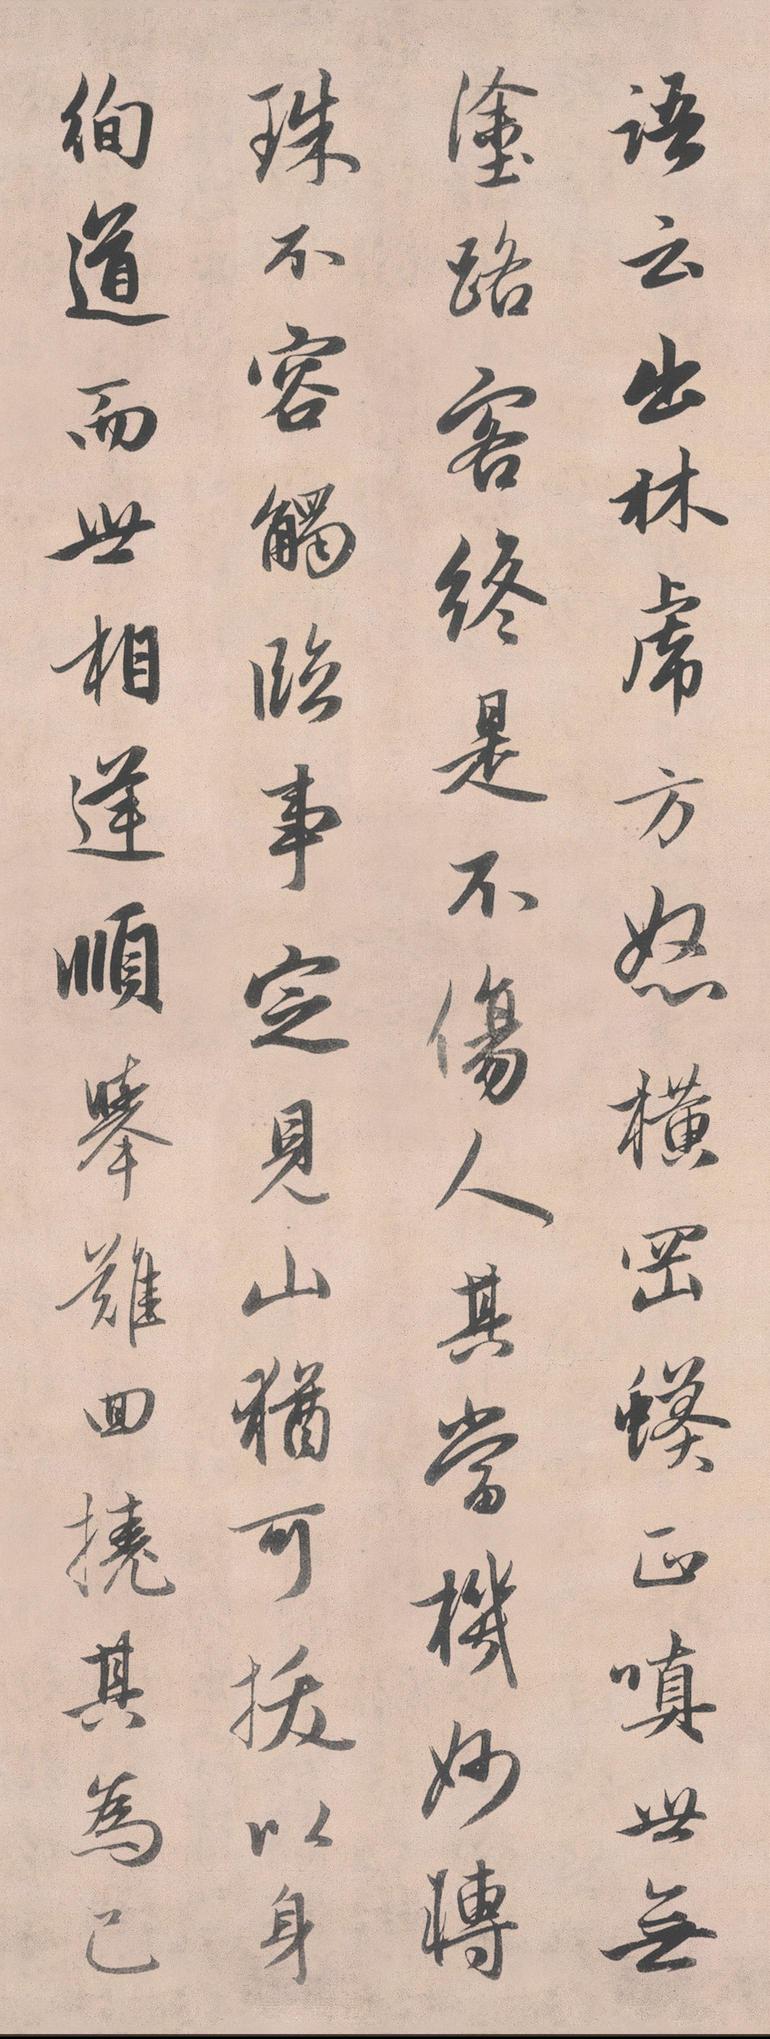 語云出林虎方怒橫岡蟒正嗔世無
塗路客終是不傷人其當機妙轉
珠不容觸臨事定見山猶可拔以身
徇道而世相逢順舉難回撓其為己